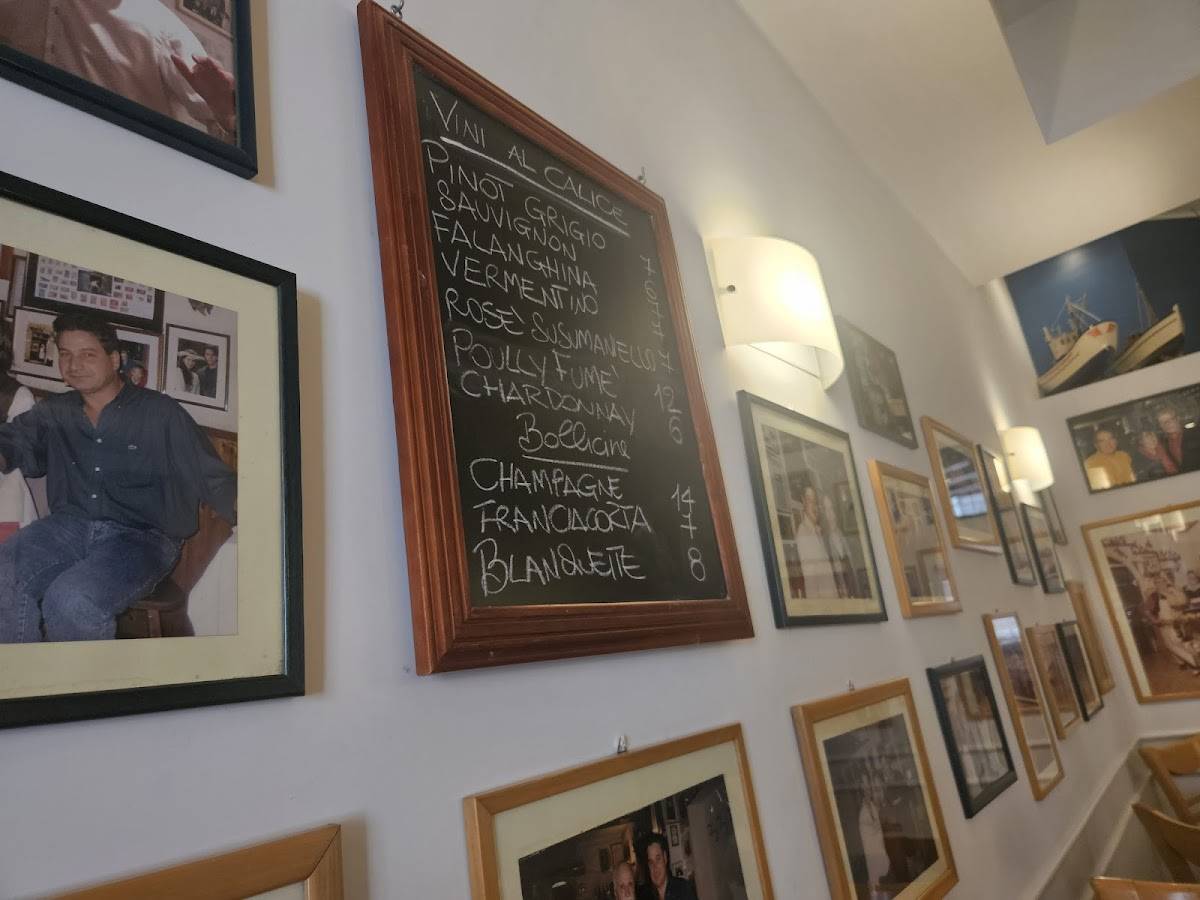 VINI AL CALICE
PINOT GRIGIO 7
SAUVIGNON 6
FALANGHINA 7
VERMENTINO 7
ROSÈ SUSUMANELLO 7
POULLY FUMÈ 12
CHARDONNAY 6
Bollicine
CHAMPAGNE 14
FRANCIACORTA 7
BLANQUETTE 8